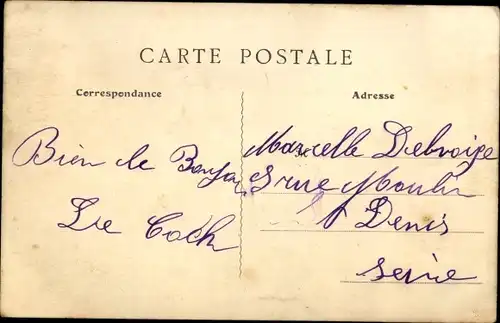 CARTE POSTALE
Correspondance
Adresse
Bien le Bonjour
Le Coch
Marcelle Debroize
5 rue Moulin
St Denis
Seine